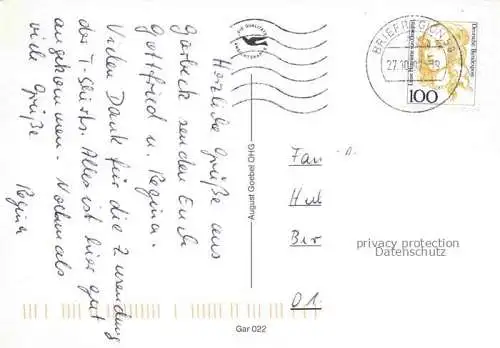 Herzliche Grüße aus
Garbeck senden Euch
Gottfried u. Regina.
Vielen Dank für die Zusendung
der T-Shirts. Alles ist hier gut
angekommen. Nochmals
viele Grüße
Regina
August Goebel CHG
Gar 022
BRIEFREGION
27.10.
Deutsche Bundespost
100
Fam
Hub
Ber
01
privacy protection
Datenschutz